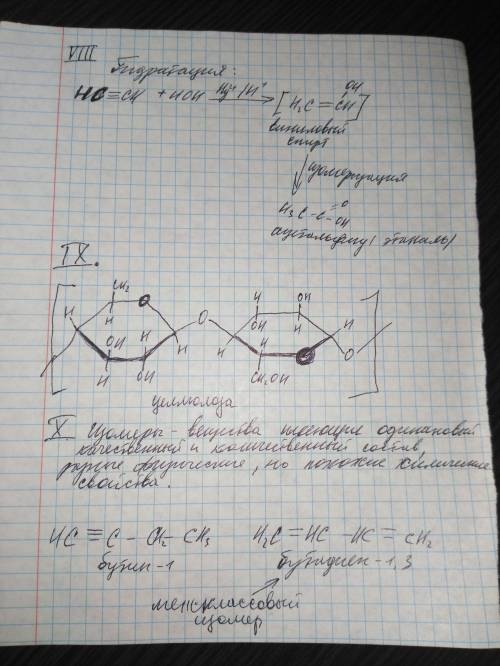 VIII
Гидратация:
HC≡CH + HOH Hg²⁺/H⁺ → [H₂C = CH OH]
виниловый
спирт
изомеризация
H₃C - C =O OH
ацетальдегид (этаналь)
IX.
CH₂ O H H OH H OH H OH H O H OH H OH H CH₂OH O H O
целлюлоза
X Изомеры - вещества имеющие одинаковый
качественный и количественный состав,
разные физические, но похожие химические
свойства.
HC ≡ C - CH₂ - CH₃ H₂C = HC - HC = CH₂
бутин-1 бутадиен-1,3
межклассовый
изомер